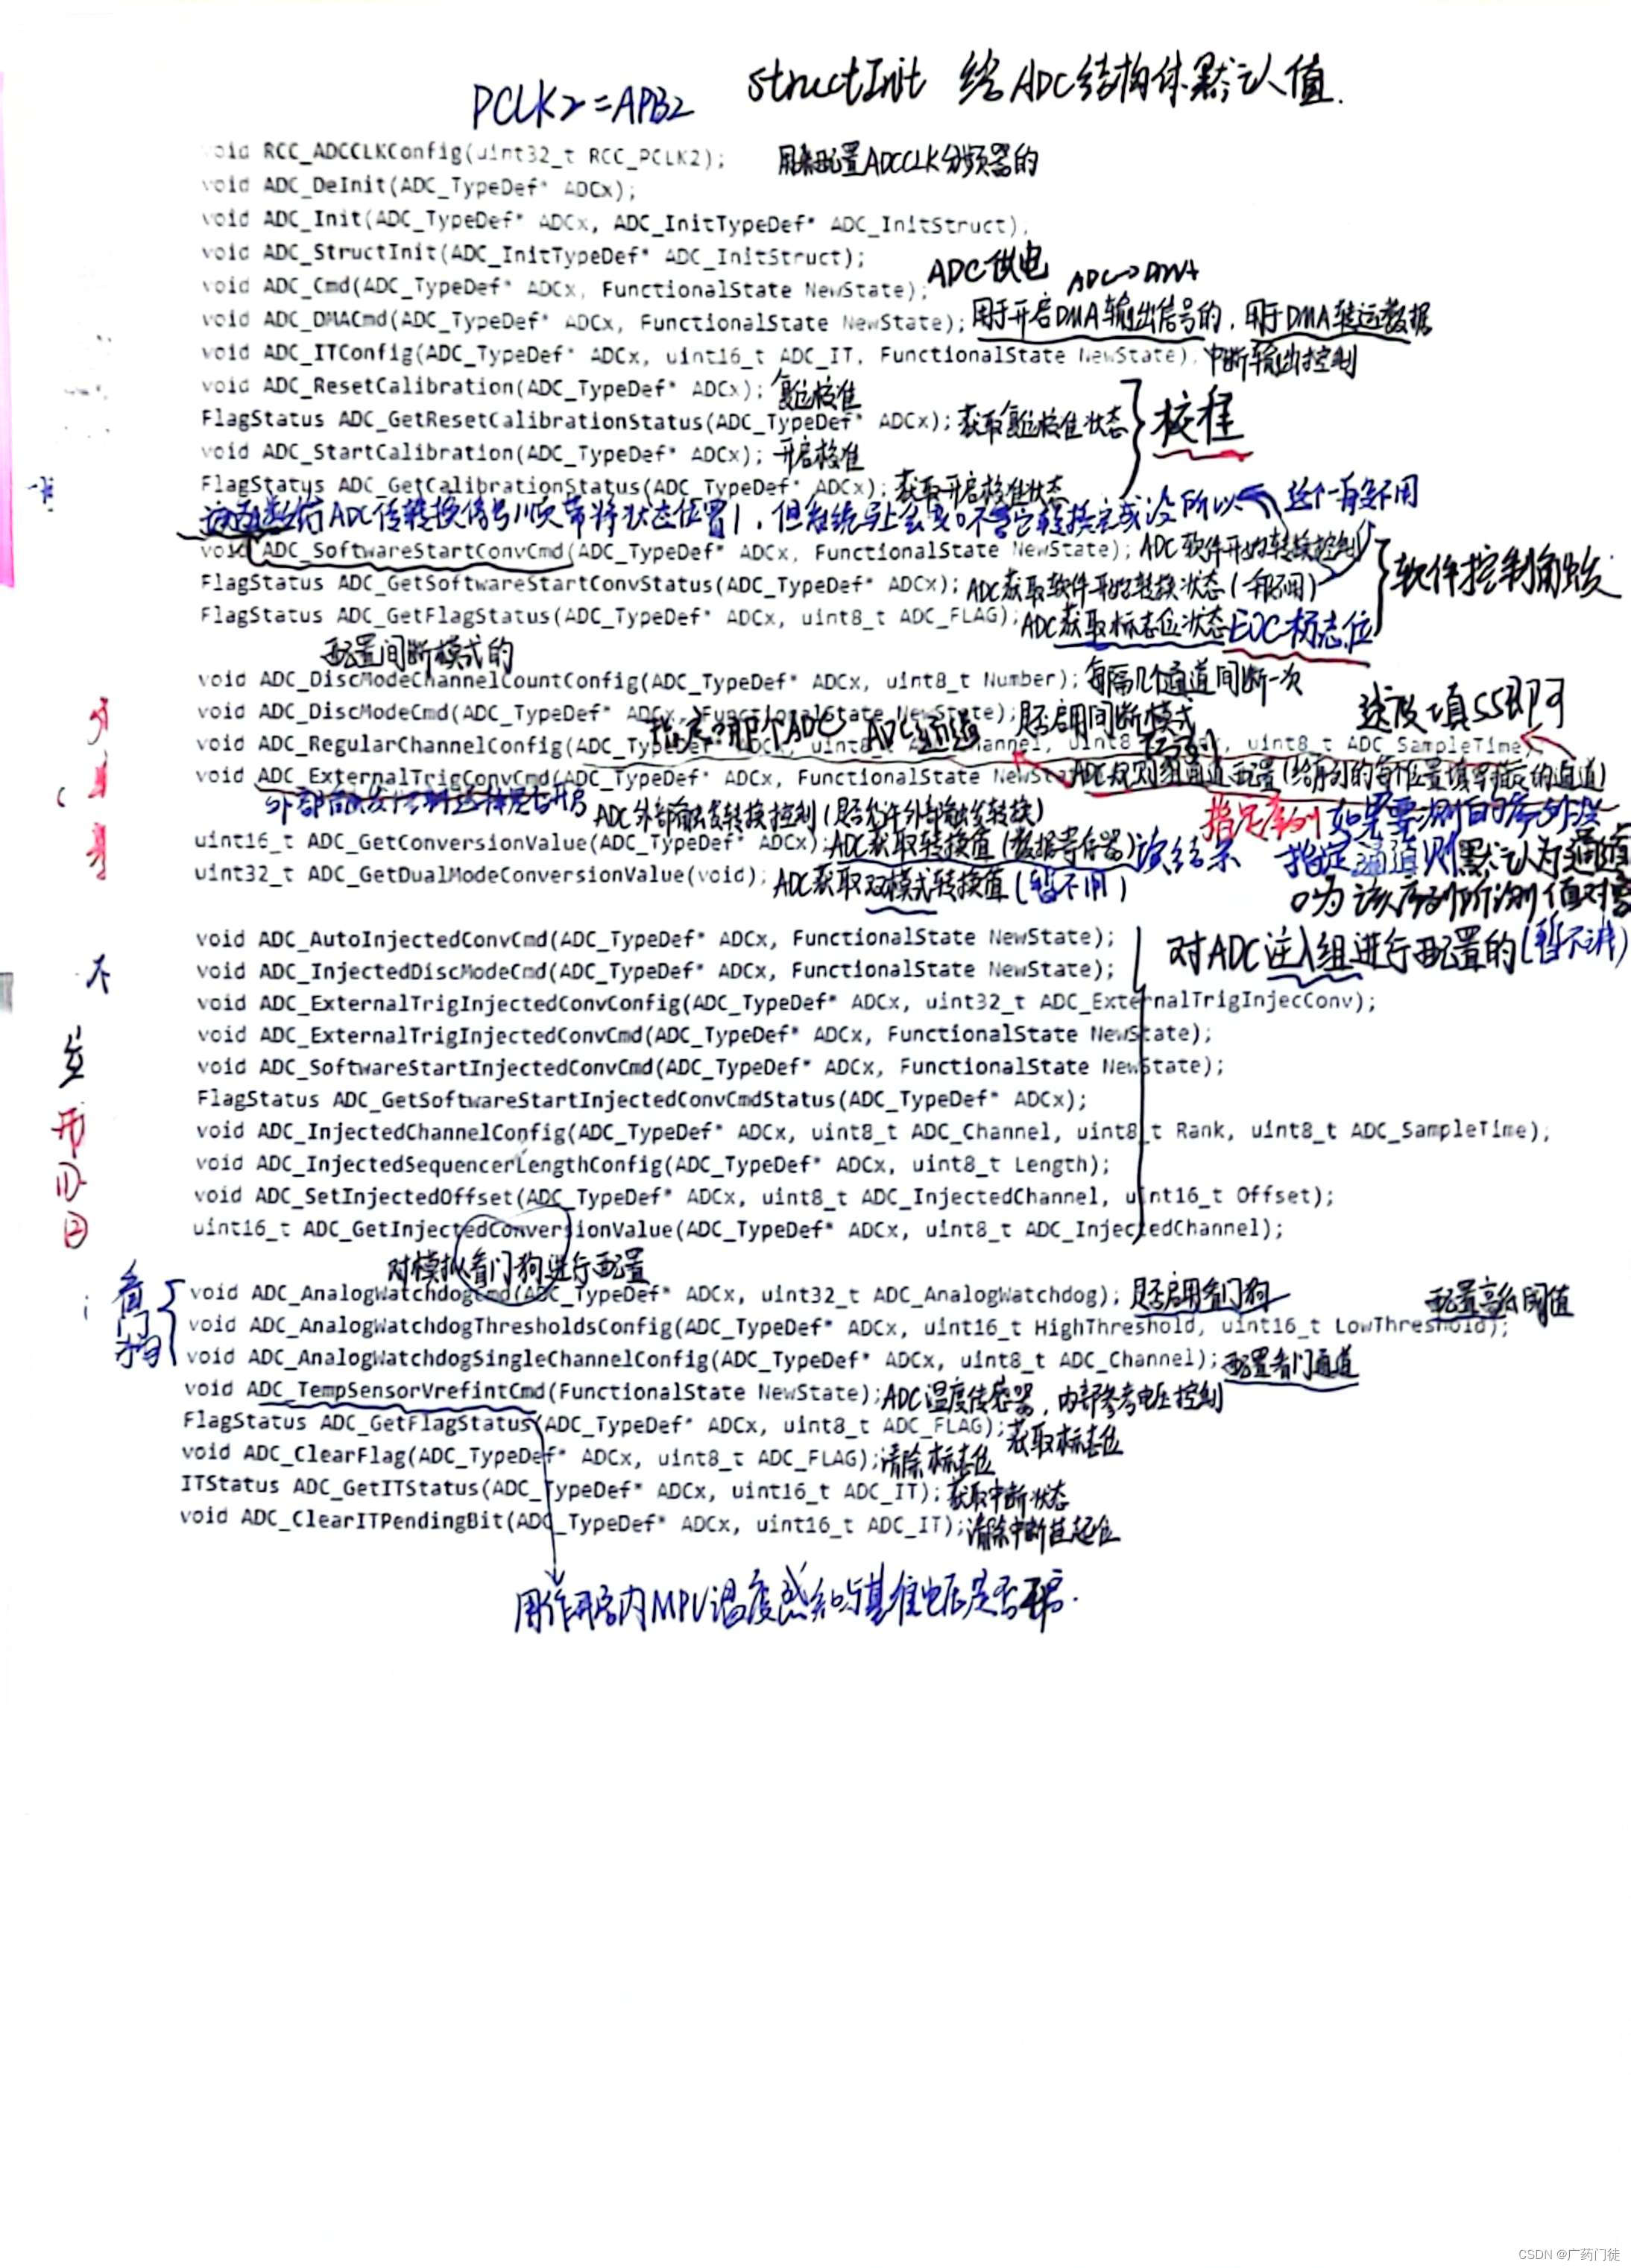 structInit 给ADC结构体默认值.
PCLK2=APB2
void RCC_ADCCLKConfig(uint32_t RCC_PCLK2); 用来配置ADCCLK分频器的
void ADC_DeInit(ADC_TypeDef* ADCx);
void ADC_Init(ADC_TypeDef* ADCx, ADC_InitTypeDef* ADC_InitStruct);
void ADC_StructInit(ADC_InitTypeDef* ADC_InitStruct);
void ADC_Cmd(ADC_TypeDef* ADCx, FunctionalState NewState); ADC供电 ADC→DMA
void ADC_DMACmd(ADC_TypeDef* ADCx, FunctionalState NewState); 用于开启DMA输出信号的, 用于DMA转运数据
void ADC_ITConfig(ADC_TypeDef* ADCx, uint16_t ADC_IT, FunctionalState NewState); 中断输出控制
void ADC_ResetCalibration(ADC_TypeDef* ADCx); 复位校准
FlagStatus ADC_GetResetCalibrationStatus(ADC_TypeDef* ADCx); 获取复位校准状态
void ADC_StartCalibration(ADC_TypeDef* ADCx); 开启校准
FlagStatus ADC_GetCalibrationStatus(ADC_TypeDef* ADCx); 获取开启校准状态
给ADC传转换信号 将状态位置1, 但系统马上会变0 所以 这个一般不用
void ADC_SoftwareStartConvCmd(ADC_TypeDef* ADCx, FunctionalState NewState); ADC软件开始转换控制
FlagStatus ADC_GetSoftwareStartConvStatus(ADC_TypeDef* ADCx); ADC获取软件开始转换状态(一般不用)
软件控制触发
FlagStatus ADC_GetFlagStatus(ADC_TypeDef* ADCx, uint8_t ADC_FLAG); ADC获取标志位状态 EOC标志位
配置间断模式的
void ADC_DiscModeChannelCountConfig(ADC_TypeDef* ADCx, uint8_t Number); 每隔几个通道间断一次
void ADC_DiscModeCmd(ADC_TypeDef* ADCx, FunctionalState NewState); 是否启用间断模式
指定哪个ADC ADC通道
void ADC_RegularChannelConfig(ADC_TypeDef* ADCx, uint8_t ADC_Channel, uint8_t Rank, uint8_t ADC_SampleTime);
ADC规则组通道配置(给序列的每个位置填写指定的通道)
void ADC_ExternalTrigConvCmd(ADC_TypeDef* ADCx, FunctionalState NewState);
ADC外部触发转换控制(是否允许外部触发转换)
指定序列 如果要测的序列没
指定通道则默认为通道
0为该序列所测值对象
uint16_t ADC_GetConversionValue(ADC_TypeDef* ADCx); ADC获取转换值(数据寄存器)读结果
uint32_t ADC_GetDualModeConversionValue(void); ADC获取双模式转换值(暂不用)
void ADC_AutoInjectedConvCmd(ADC_TypeDef* ADCx, FunctionalState NewState);
对ADC注入组进行配置的(暂不讲)
void ADC_InjectedDiscModeCmd(ADC_TypeDef* ADCx, FunctionalState NewState);
void ADC_ExternalTrigInjectedConvConfig(ADC_TypeDef* ADCx, uint32_t ADC_ExternalTrigInjecConv);
void ADC_ExternalTrigInjectedConvCmd(ADC_TypeDef* ADCx, FunctionalState NewState);
void ADC_SoftwareStartInjectedConvCmd(ADC_TypeDef* ADCx, FunctionalState NewState);
FlagStatus ADC_GetSoftwareStartInjectedConvCmdStatus(ADC_TypeDef* ADCx);
void ADC_InjectedChannelConfig(ADC_TypeDef* ADCx, uint8_t ADC_Channel, uint8_t Rank, uint8_t ADC_SampleTime);
void ADC_InjectedSequencerLengthConfig(ADC_TypeDef* ADCx, uint8_t Length);
void ADC_SetInjectedOffset(ADC_TypeDef* ADCx, uint8_t ADC_InjectedChannel, uint16_t Offset);
uint16_t ADC_GetInjectedConversionValue(ADC_TypeDef* ADCx, uint8_t ADC_InjectedChannel);
对模拟看门狗进行配置
看门狗
void ADC_AnalogWatchdogCmd(ADC_TypeDef* ADCx, uint32_t ADC_AnalogWatchdog); 是否启用看门狗
配置高低阈值
void ADC_AnalogWatchdogThresholdsConfig(ADC_TypeDef* ADCx, uint16_t HighThreshold, uint16_t LowThreshold);
void ADC_AnalogWatchdogSingleChannelConfig(ADC_TypeDef* ADCx, uint8_t ADC_Channel); 配置看门通道
void ADC_TempSensorVrefintCmd(FunctionalState NewState); ADC温度传感器, 内部参考电压控制
FlagStatus ADC_GetFlagStatus(ADC_TypeDef* ADCx, uint8_t ADC_FLAG); 获取标志位
void ADC_ClearFlag(ADC_TypeDef* ADCx, uint8_t ADC_FLAG); 清除标志位
ITStatus ADC_GetITStatus(ADC_TypeDef* ADCx, uint16_t ADC_IT); 获取中断状态
void ADC_ClearITPendingBit(ADC_TypeDef* ADCx, uint16_t ADC_IT); 清除中断挂起位
用作开启内MPU温度感知与基准电压是否开启.
CSDN @广药门徒